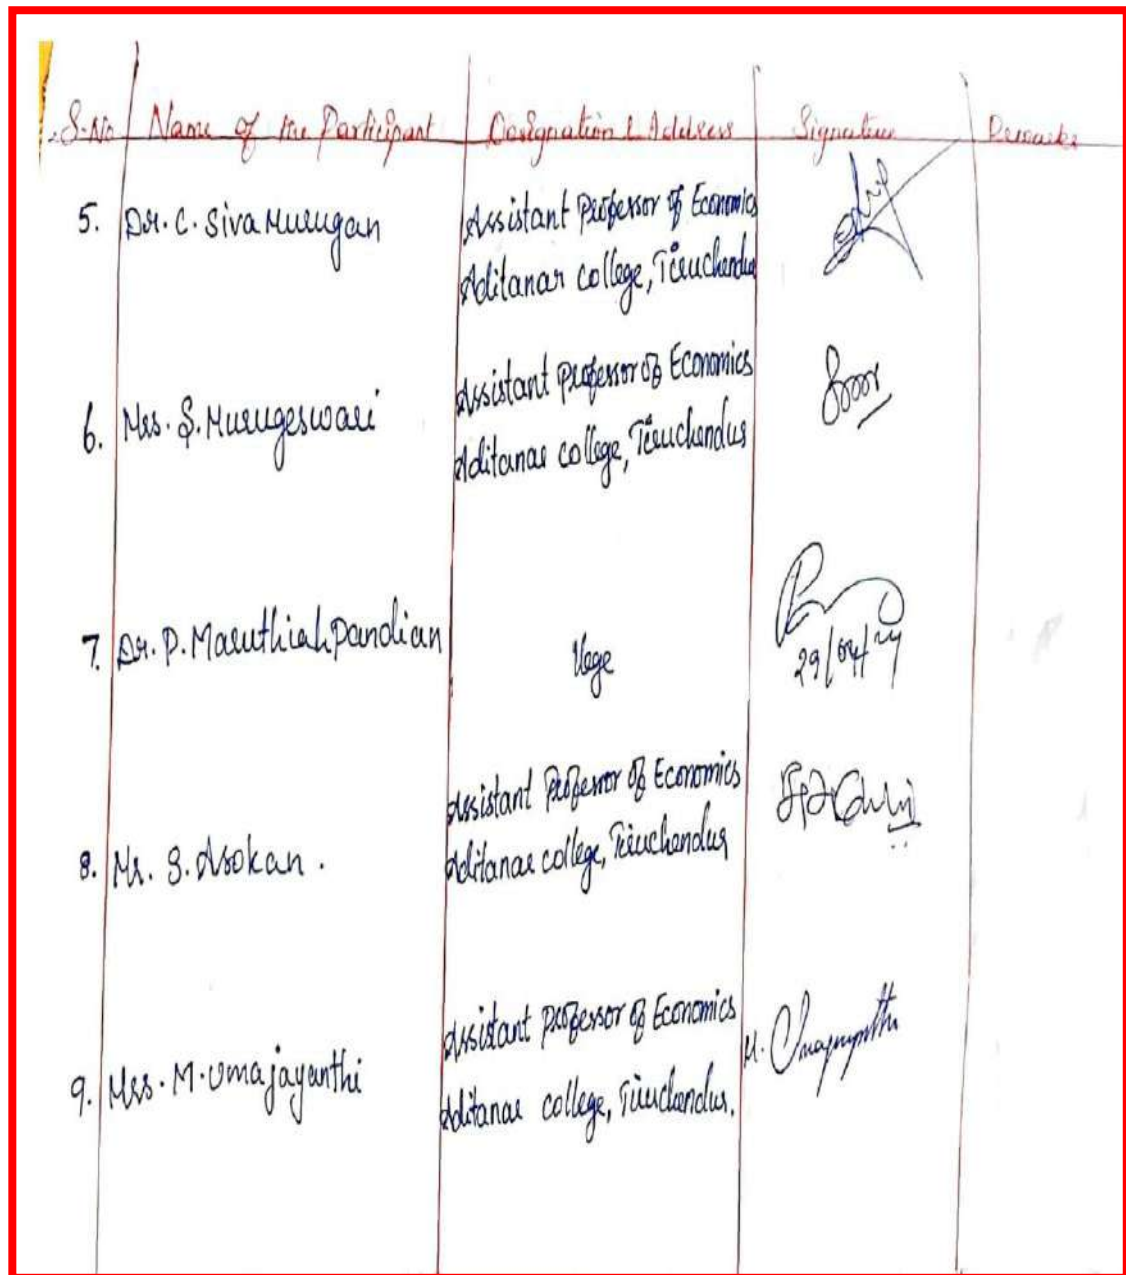 S.No Name of the Participant Designation & Address Signature Remarks
5. Dr. C. Siva Murugan
Assistant Professor of Economics
Aditanar college, Tiruchendur
6. Mrs. S. Murugeswari
Assistant Professor of Economics
Aditanar college, Tiruchendur
7. Dr. P. Maruthiah pandian
29/04/24
8. Mr. S. Asokan.
Assistant Professor of Economics
Aditanar college, Tiruchendur
9. Mrs. M. Umajayanthi
Assistant Professor of Economics
Aditanar college, Tiruchendur.
M. Umajayanthi